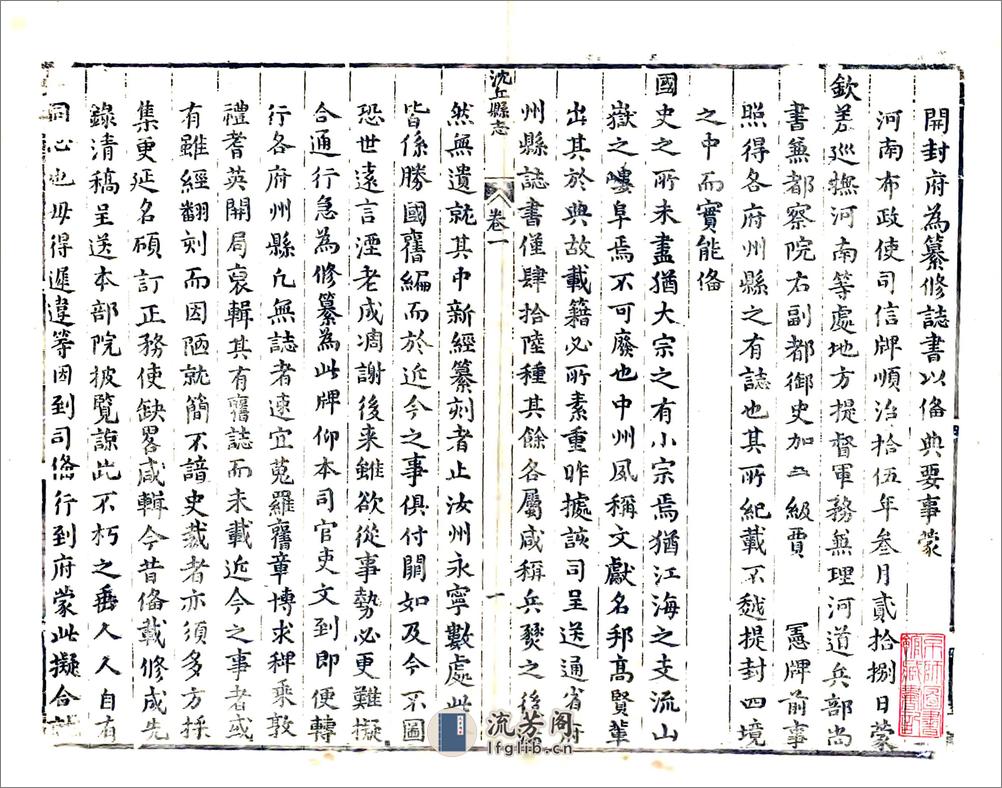 開封府為纂修誌書以俻典要事蒙
河南布政使司信牌順治拾伍年叁月貳拾捌日蒙
欽差巡撫河南等處地方提督軍務兼理河道兵部尚
書兼都察院右副都御史加二級賈 憲牌前事
照得各府州縣之有誌也其所紀載不越提封四境
之中而實能俻
國史之所未盡猶大宗之有小宗焉猶江海之支流山
嶽之嶁阜焉不可廢也中州夙稱文獻名邦高賢輩
出其於典故載籍必所素重昨據該司呈送通省府
州縣誌書僅肆拾陸種其餘各屬咸稱兵燹之後
沈丘縣志 卷一 一
然無遺就其中新經纂刻者止汝州永寧數處此
皆係勝國舊編而於近今之事俱付闕如及今不圖
恐世遠言湮老成凋謝後来雖欲從事勢必更難擬
合通行急為修纂為此牌仰本司官吏文到即便轉
行各府州縣凢無誌者速宜蒐羅舊章博求稗乘敦
禮耆英開局裒輯其有舊誌而未載近今之事者或
有雖經翻刻而因陋就簡不諳史裁者亦須多方採
集更延名碩訂正務使缺畧咸輯今昔俻載修成先
錄清稿呈送本部院披覽諒此不朽之垂人人自有
同心也毋得遲違等因到司俻行到府蒙此擬合就
京師圖書館藏書記
流芳阁
lfglib.cn